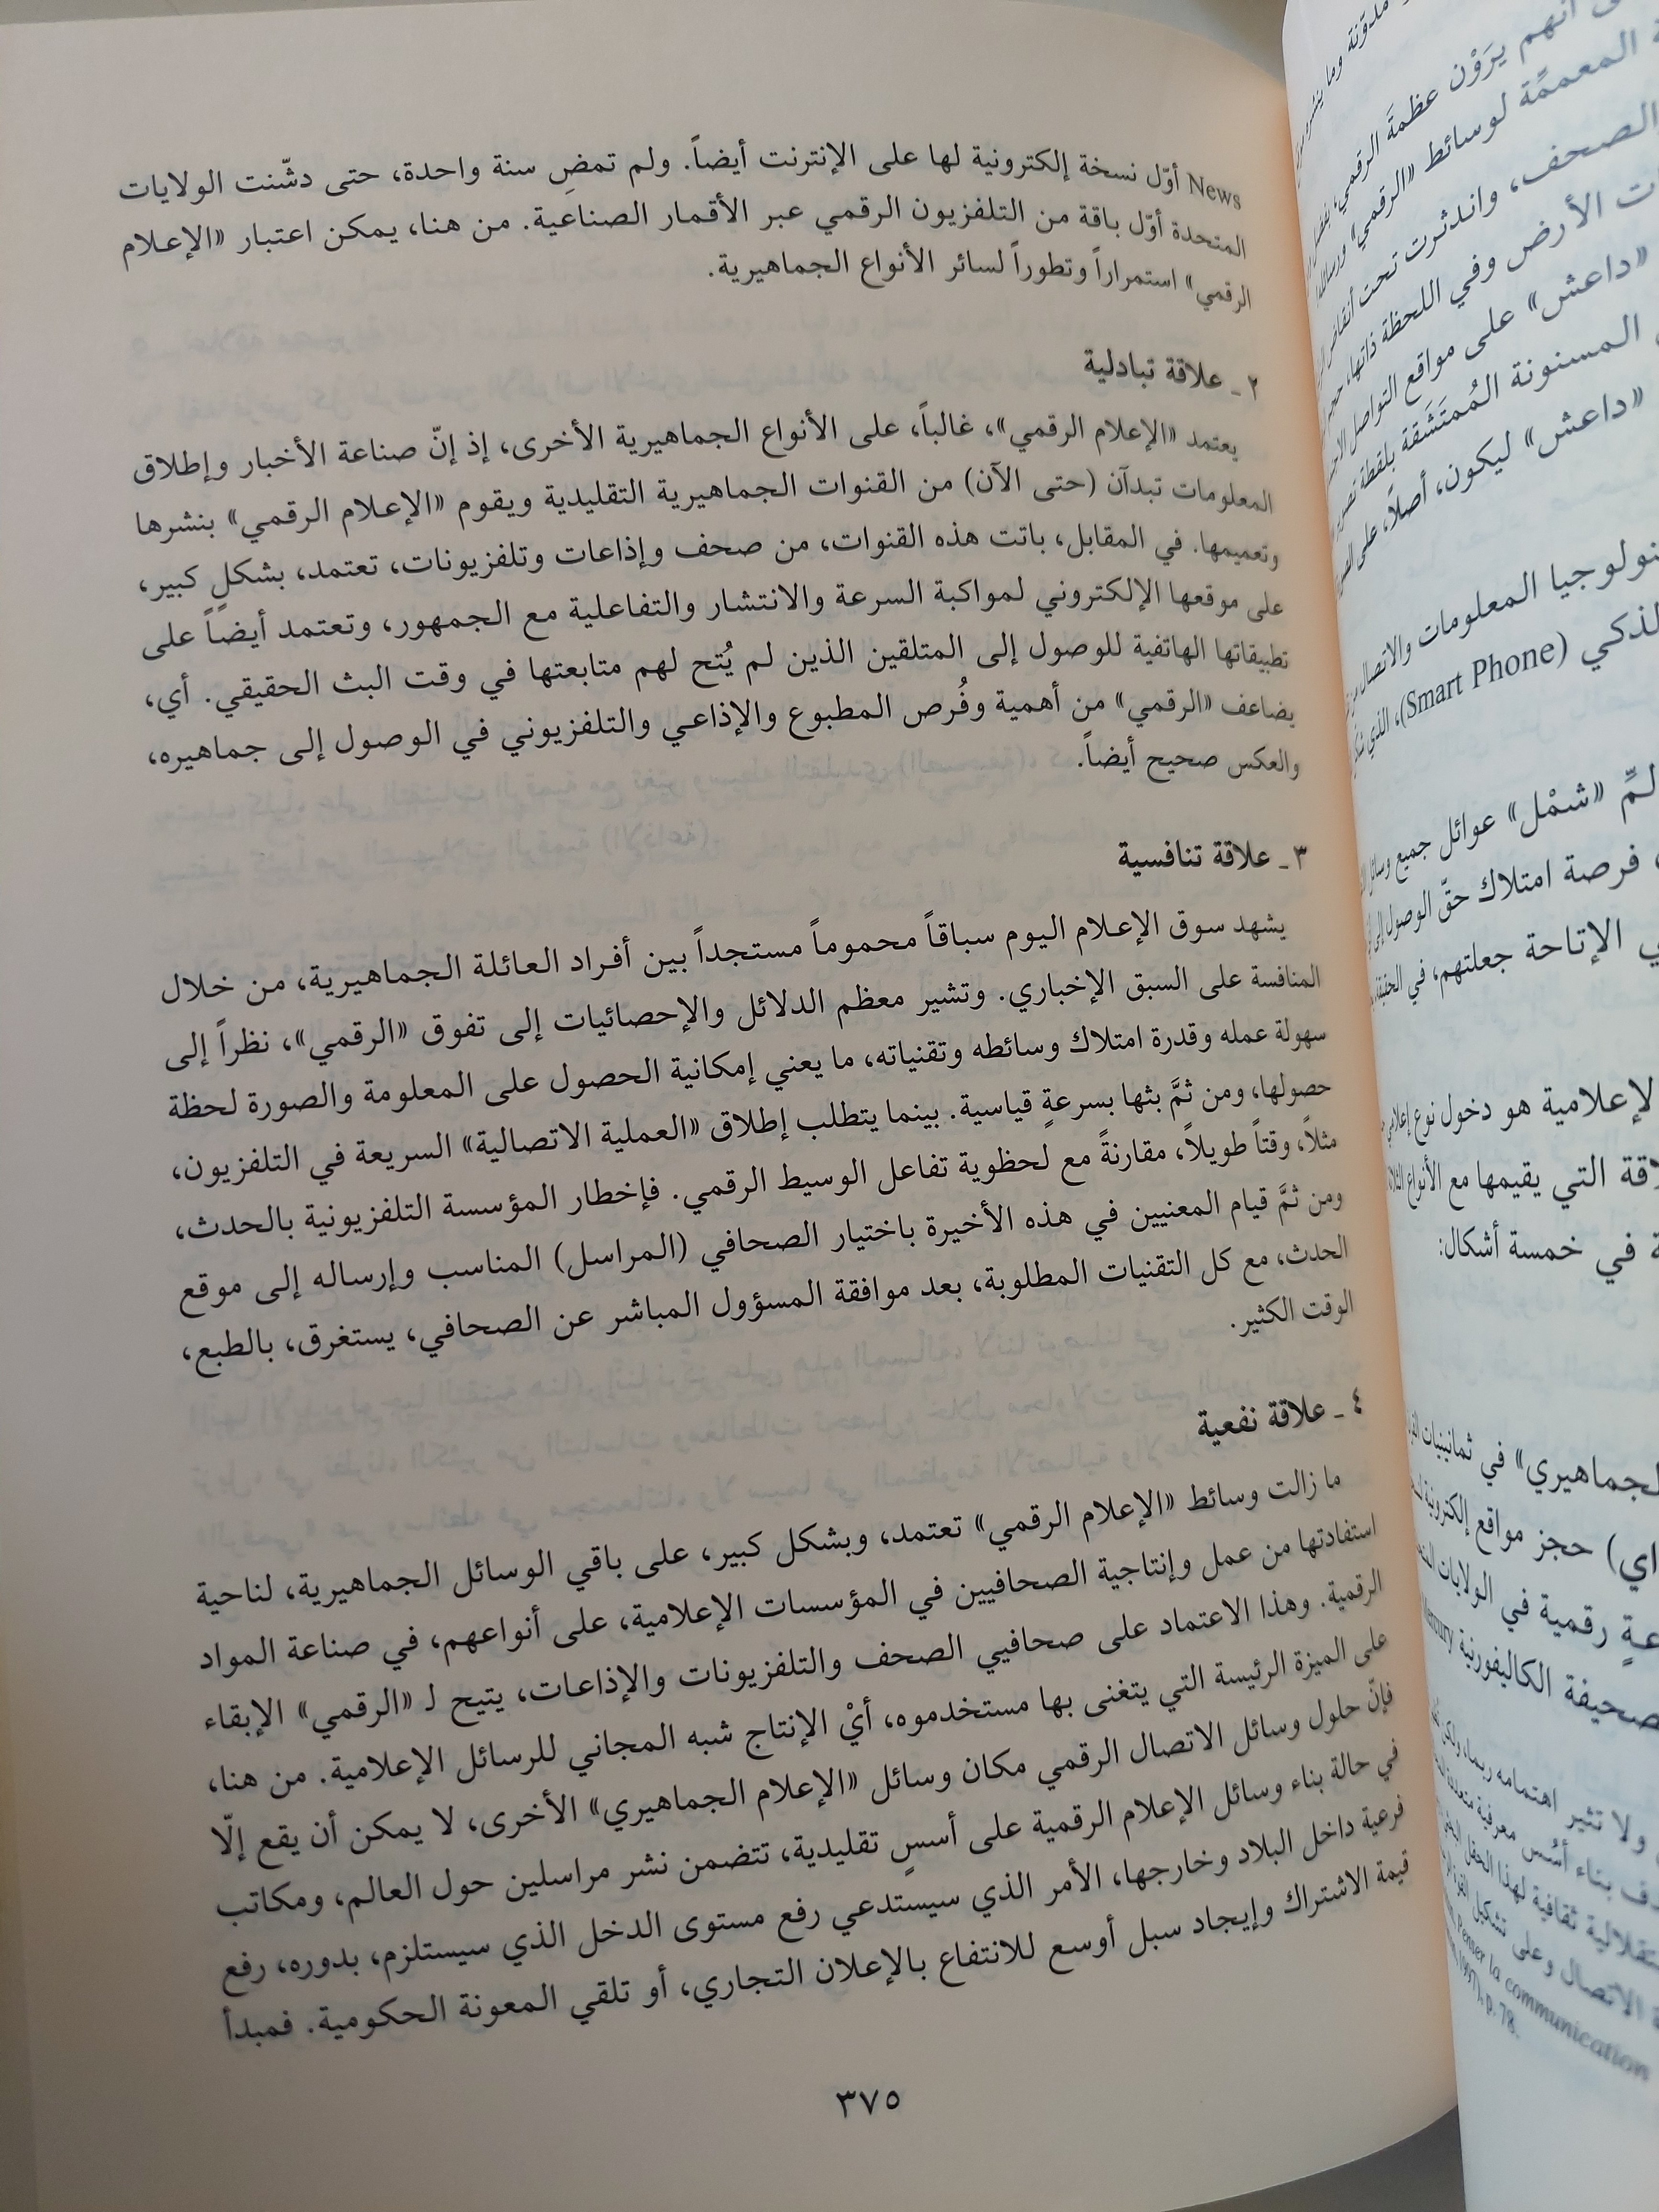 News أوّل نسخة إلكترونية لها على الإنترنت أيضاً. ولم تمضِ سنة واحدة، حتى دشّنت الولايات
المتحدة أوّل باقة من التلفزيون الرقمي عبر الأقمار الصناعية. من هنا، يمكن اعتبار «الإعلام
الرقمي» استمراراً وتطوراً لسائر الأنواع الجماهيرية.
٢ ـ علاقة تبادلية
يعتمد «الإعلام الرقمي»، غالباً، على الأنواع الجماهيرية الأخرى، إذ إنّ صناعة الأخبار وإطلاق
المعلومات تبدآن (حتى الآن) من القنوات الجماهيرية التقليدية ويقوم «الإعلام الرقمي» بنشرها
وتعميمها. في المقابل، باتت هذه القنوات، من صحف وإذاعات وتلفزيونات، تعتمد، بشكلٍ كبير،
على موقعها الإلكتروني لمواكبة السرعة والانتشار والتفاعلية مع الجمهور، وتعتمد أيضاً على
تطبيقاتها الهاتفية للوصول إلى المتلقين الذين لم يُتح لهم متابعتها في وقت البث الحقيقي. أي،
يضاعف «الرقمي» من أهمية وفُرص المطبوع والإذاعي والتلفزيوني في الوصول إلى جماهيره،
والعكس صحيح أيضاً.
٣ ـ علاقة تنافسية
يشهد سوق الإعلام اليوم سباقاً محموماً مستجداً بين أفراد العائلة الجماهيرية، من خلال
المنافسة على السبق الإخباري. وتشير معظم الدلائل والإحصائيات إلى تفوق «الرقمي»، نظراً إلى
سهولة عمله وقدرة امتلاك وسائطه وتقنياته، ما يعني إمكانية الحصول على المعلومة والصورة لحظة
حصولها، ومن ثمَّ بثها بسرعةٍ قياسية. بينما يتطلب إطلاق «العملية الاتصالية» السريعة في التلفزيون،
مثلاً، وقتاً طويلاً، مقارنةً مع لحظوية تفاعل الوسيط الرقمي. فإخطار المؤسسة التلفزيونية بالحدث،
ومن ثمَّ قيام المعنيين في هذه الأخيرة باختيار الصحافي (المراسل) المناسب وإرساله إلى موقع
الحدث، مع كل التقنيات المطلوبة، بعد موافقة المسؤول المباشر عن الصحافي، يستغرق، بالطبع،
الوقت الكثير.
٤ ـ علاقة نفعية
ما زالت وسائط «الإعلام الرقمي» تعتمد، وبشكل كبير، على باقي الوسائل الجماهيرية، لناحية
استفادتها من عمل وإنتاجية الصحافيين في المؤسسات الإعلامية، على أنواعهم، في صناعة المواد
الرقمية. وهذا الاعتماد على صحافيي الصحف والتلفزيونات والإذاعات، يتيح لـ «الرقمي» الإبقاء
على الميزة الرئيسة التي يتغنى بها مستخدموه، أيْ الإنتاج شبه المجاني للرسائل الإعلامية. من هنا،
فإنّ حلول وسائل الاتصال الرقمي مكان وسائل «الإعلام الجماهيري» الأخرى، لا يمكن أن يقع إلّا
في حالة بناء وسائل الإعلام الرقمية على أسسٍ تقليدية، تتضمن نشر مراسلين حول العالم، ومكاتب
فرعية داخل البلاد وخارجها، الأمر الذي سيستدعي رفع مستوى الدخل الذي سيستلزم، بدوره، رفع
قيمة الاشتراك وإيجاد سبل أوسع للانتفاع بالإعلان التجاري، أو تلقي المعونة الحكومية. فمبدأ
٣٧٥
أنهم يرَوْن عظمةَ الرقمي،
المعممَّة لوسائط «الرقمي»
الصحف، واندثرت تحت أنقاض
الأرض وفي اللحظة ذاتها،
«داعش» على مواقع التواصل
المسنونة المُمتَشَقة بلقطة
«داعش» ليكون، أصلاً، على
المعلومات والاتصال
(Smart Phone)، الذي
لمِّ «شمْل» عوائل جميع
فرصة امتلاك حقّ الوصول
الإتاحة جعلتهم، في
هو دخول نوع
التي يقيمها مع الأنواع
في خمسة أشكال:
في ثمانينيات
حجز مواقع إلكترونية
رقمية في الولايات
الكاليفورنية
ولا تثير اهتمامه ربما،
بناء أُسُس معرفية
ثقافية لهذا الحقل
الاتصال وعلى تشكيل
Penser la communication
1997), p. 78.